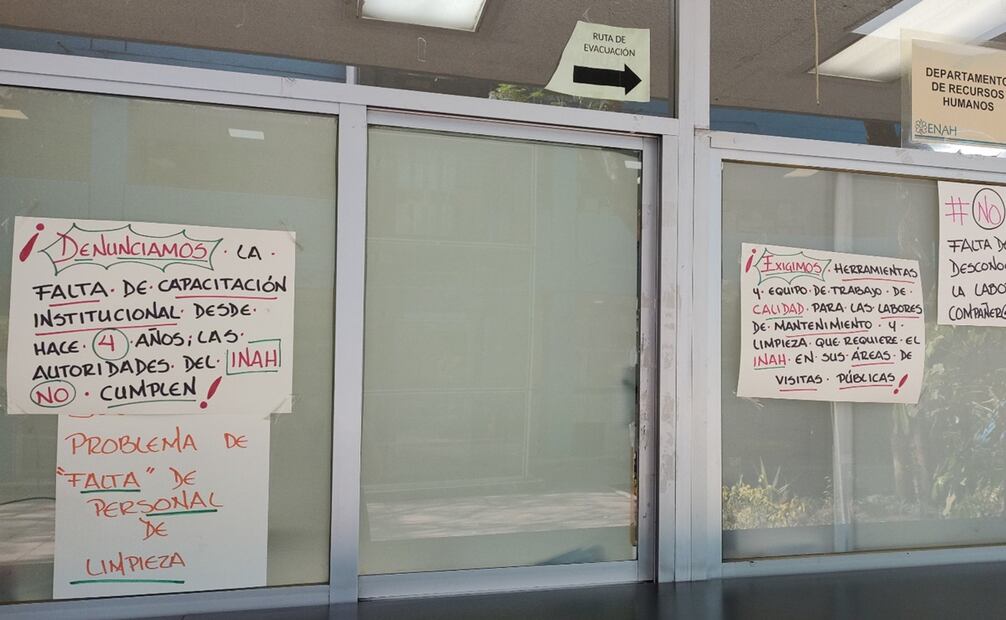 RUTA DE
EVACUACIÓN
DEPARTAMENTO
DE RECURSOS
HUMANOS
ENAH
¡DENUNCIAMOS LA
FALTA DE CAPACITACIÓN
INSTITUCIONAL DESDE
HACE 4 AÑOS; LAS
AUTORIDADES DEL INAH
NO CUMPLEN!
PROBLEMA DE
"FALTA" DE
PERSONAL
DE
LIMPIEZA
¡EXIGIMOS HERRAMIENTAS
Y EQUIPO DE TRABAJO DE
CALIDAD PARA LAS LABORES
DE MANTENIMIENTO Y
LIMPIEZA QUE REQUIERE EL
INAH EN SUS ÁREAS DE
VISITAS PÚBLICAS!
# NO
FALTA DE
DESCONO
LA LABO
COMPAÑER